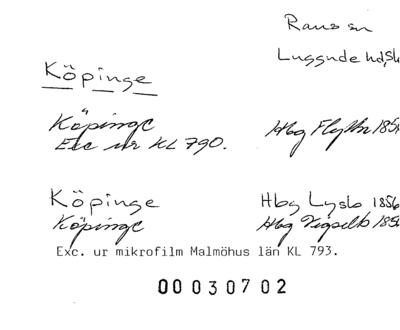 Raus sn
Luggude hd, Sk
Köpinge
Köpinge Hbg Flyttn 185
Exc ur KL 790.
Köpinge Hbg Lysb 1856
Köpinge Hbg Vigselb 185
Exc. ur mikrofilm Malmöhus län KL 793.
00030702